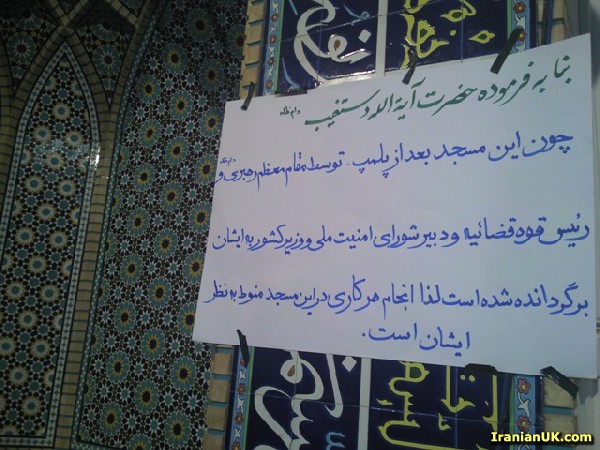 بنا به فرموده حضرت آیة الله دستغیب دام ظله
چون این مسجد بعد از پلمپ، توسط مقام معظم رهبری دام ظله و
رئیس قوه قضائیه و دبیر شورای امنیت ملی و وزیر کشور به ایشان
برگردانده شده است لذا انجام هر کاری در این مسجد منوط به نظر
ایشان است.
IranianUK.com